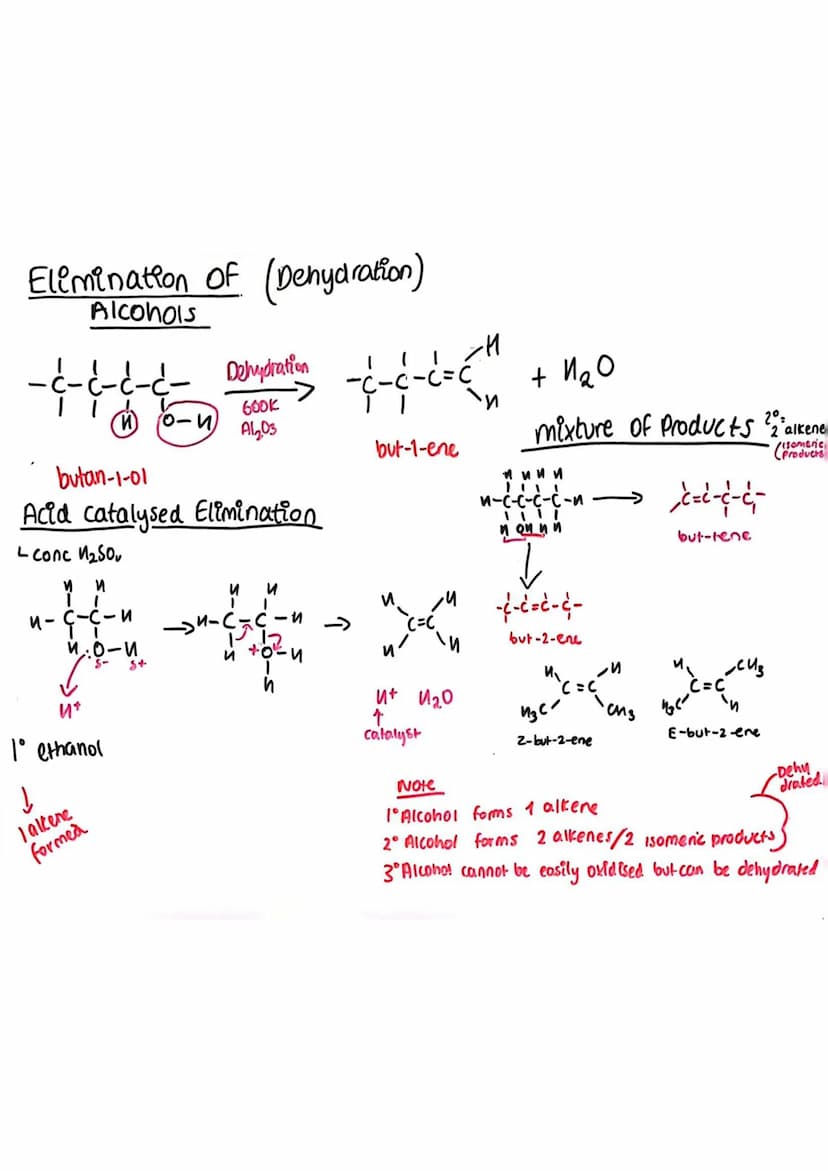 Elimination of (Dehydration)
Alcohols
-C-C-C-C-
H O-H
Dehydration
600K
Al2O3
-C-C-C=C H
H
+ H2O
butan-1-ol
but-1-ene
mixture of Products 2°= 2 alkene
(isomeric products
Acid catalysed Elimination
conc H2SO4
H H H H
H-C-C-C-C-H
H OH H H
C=C-C-C-
but-1ene
-C-C=C-C-
but-2-ene
H H
H-C-C-H
H :O-H
δ- δ+
H+
H H
H-C-C-H
H +O-H
H
H H
C=C
H H
H+ H2O
catalyst
1° ethanol
1 alkene formed
H H
C=C
H3C CH3
Z-but-2-ene
H CH3
C=C
H3C H
E-but-2-ene
Note
1° Alcohol forms 1 alkene
2° Alcohol forms 2 alkenes/2 isomeric products
3° Alcohol cannot be easily oxidised but can be dehydrated
Dehydrated